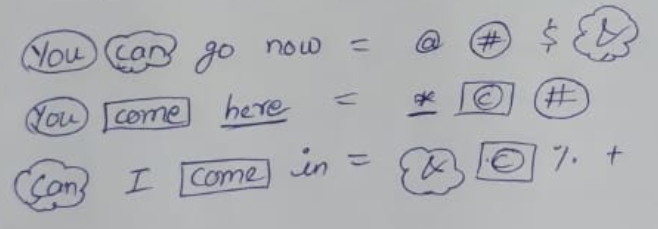 You can go now = @ # $ &
You come here = * © #
Can I come in = & © % +